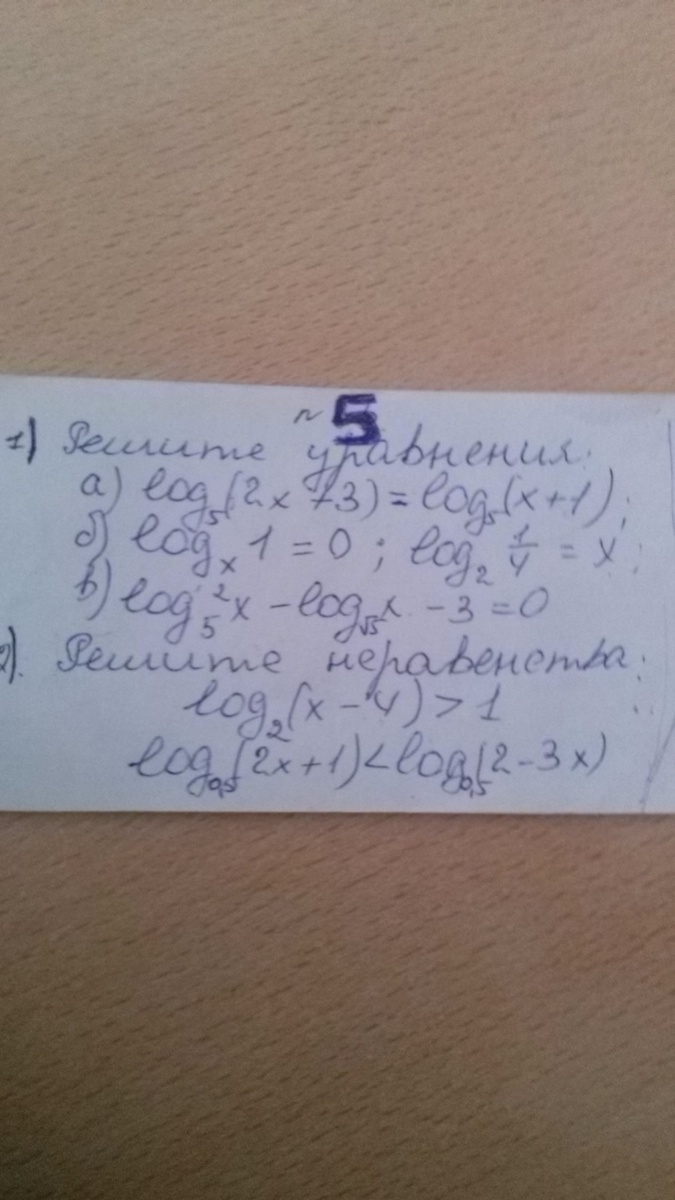 №5
1) Решите уравнения:
а) log₅(2x+3) = log₅(x+1);
б) logₓ1 = 0; log₂ 1/4 = x;
в) log₅²x − log_√5 x − 3 = 0
2). Решите неравенства:
log₂(x−4) > 1
log₀,₅(2x+1) < log₀,₅(2−3x)